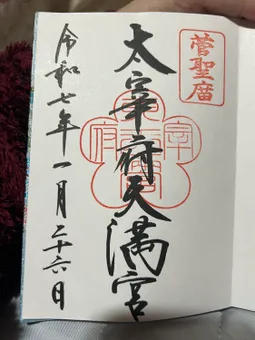 菅聖庿
太宰府天満宮
令和七年一月二十六日